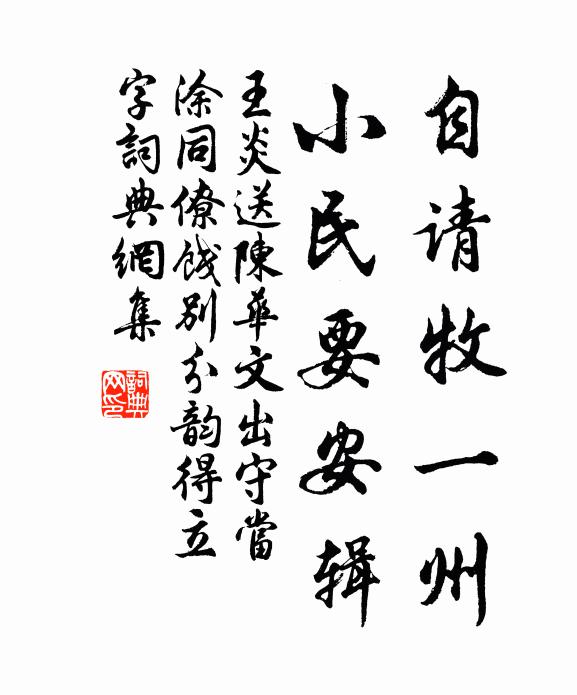 自请牧一州
小民要安辑
王炎送陳華文出守當
涂同僚餞別分韵得立
字詞典網集
詞典网印